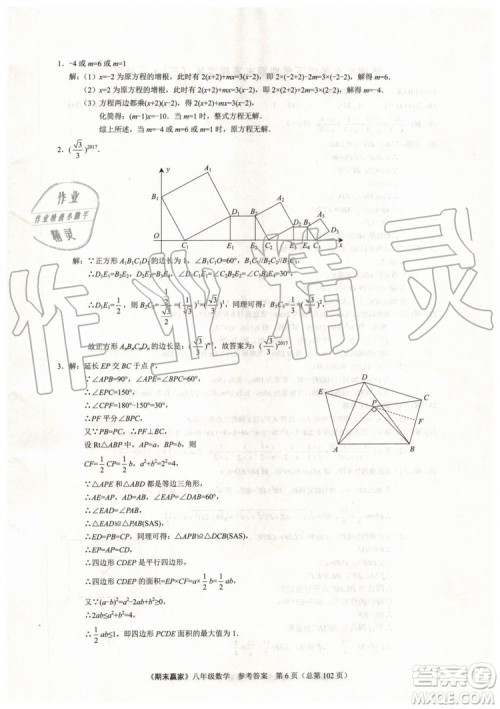 1. -4 或 m=6 或 m=1
解:(1) x=-2 为原方程的增根,此时有 2(x+2)+mx=3(x-2),即 2×(-2+2)-2m=3×(-2-2),解得 m=6.
(2) x=2 为原方程的增根,此时有 2(x+2)+mx=3(x-2),即 2×(2+2)+2m=3×(2-2),解得 m=-4.
(3) 方程两边都乘(x+2)(x-2),得 2(x+2)+mx=3(x-2),
化简得:(m-1)x=-10. 当 m=1 时,整式方程无解.
综上所述,当 m=-4 或 m=6 或 m=1 时,原方程无解.
2. (√3/3)²⁰¹⁷.
y
A₁
B₁
D₁
O C₁ E₁ C₂ C₃ x
解:∵正方形 A₁B₁C₁D₁ 的边长为 1,∠B₁C₁O=60°,
∴D₁E₁=1/2,则 B₂C₂=(√3/3)¹,同理可得:
故正方形 AₙBₙCₙDₙ 的边长
故答案为:(√3/3)²⁰¹⁷.
3. 解:延长 EP 交 BC 于点 F,
∵∠APB=90°,∠APE=60°,
∴∠EPC=150°,
∴∠CPF=180°-150°=30°,
∴PF 平分∠BPC.
又∵PB=PC,∴PF⊥BC.
设 Rt△ABP 中,AP=a,BP=b,则
CF=1/2 CP=1/2 b,a²+b²=2²=4.
∵△APE 和△ABD 都是等边三角形,
∴AE=AP,AD=AB,∠EAP=∠DAB=60°,
∴∠EAD=∠PAB,
∴△EAD≌△PAB(SAS),
∴ED=PB=CP,同理可得:
△APB≌△DCB(SAS),
∴EP=AP=CD,
∴四边形 CDEP 是平行四边形,
∴四边形 CDEP 的面积=EP×CF=a×1/2 b=1/2 ab,
又∵(a-b)²=a²-2ab+b²≥0,
∴2ab≤a²+b²=4,
∴1/2 ab≤1,即四边形 PCDE 面积的最大值为 1.
D
E
C
P
F
A B
作业
作业检查小助手
精灵
作业精灵
《期末赢家》八年级数学 参考答案 第 6 页(总第 102 页)